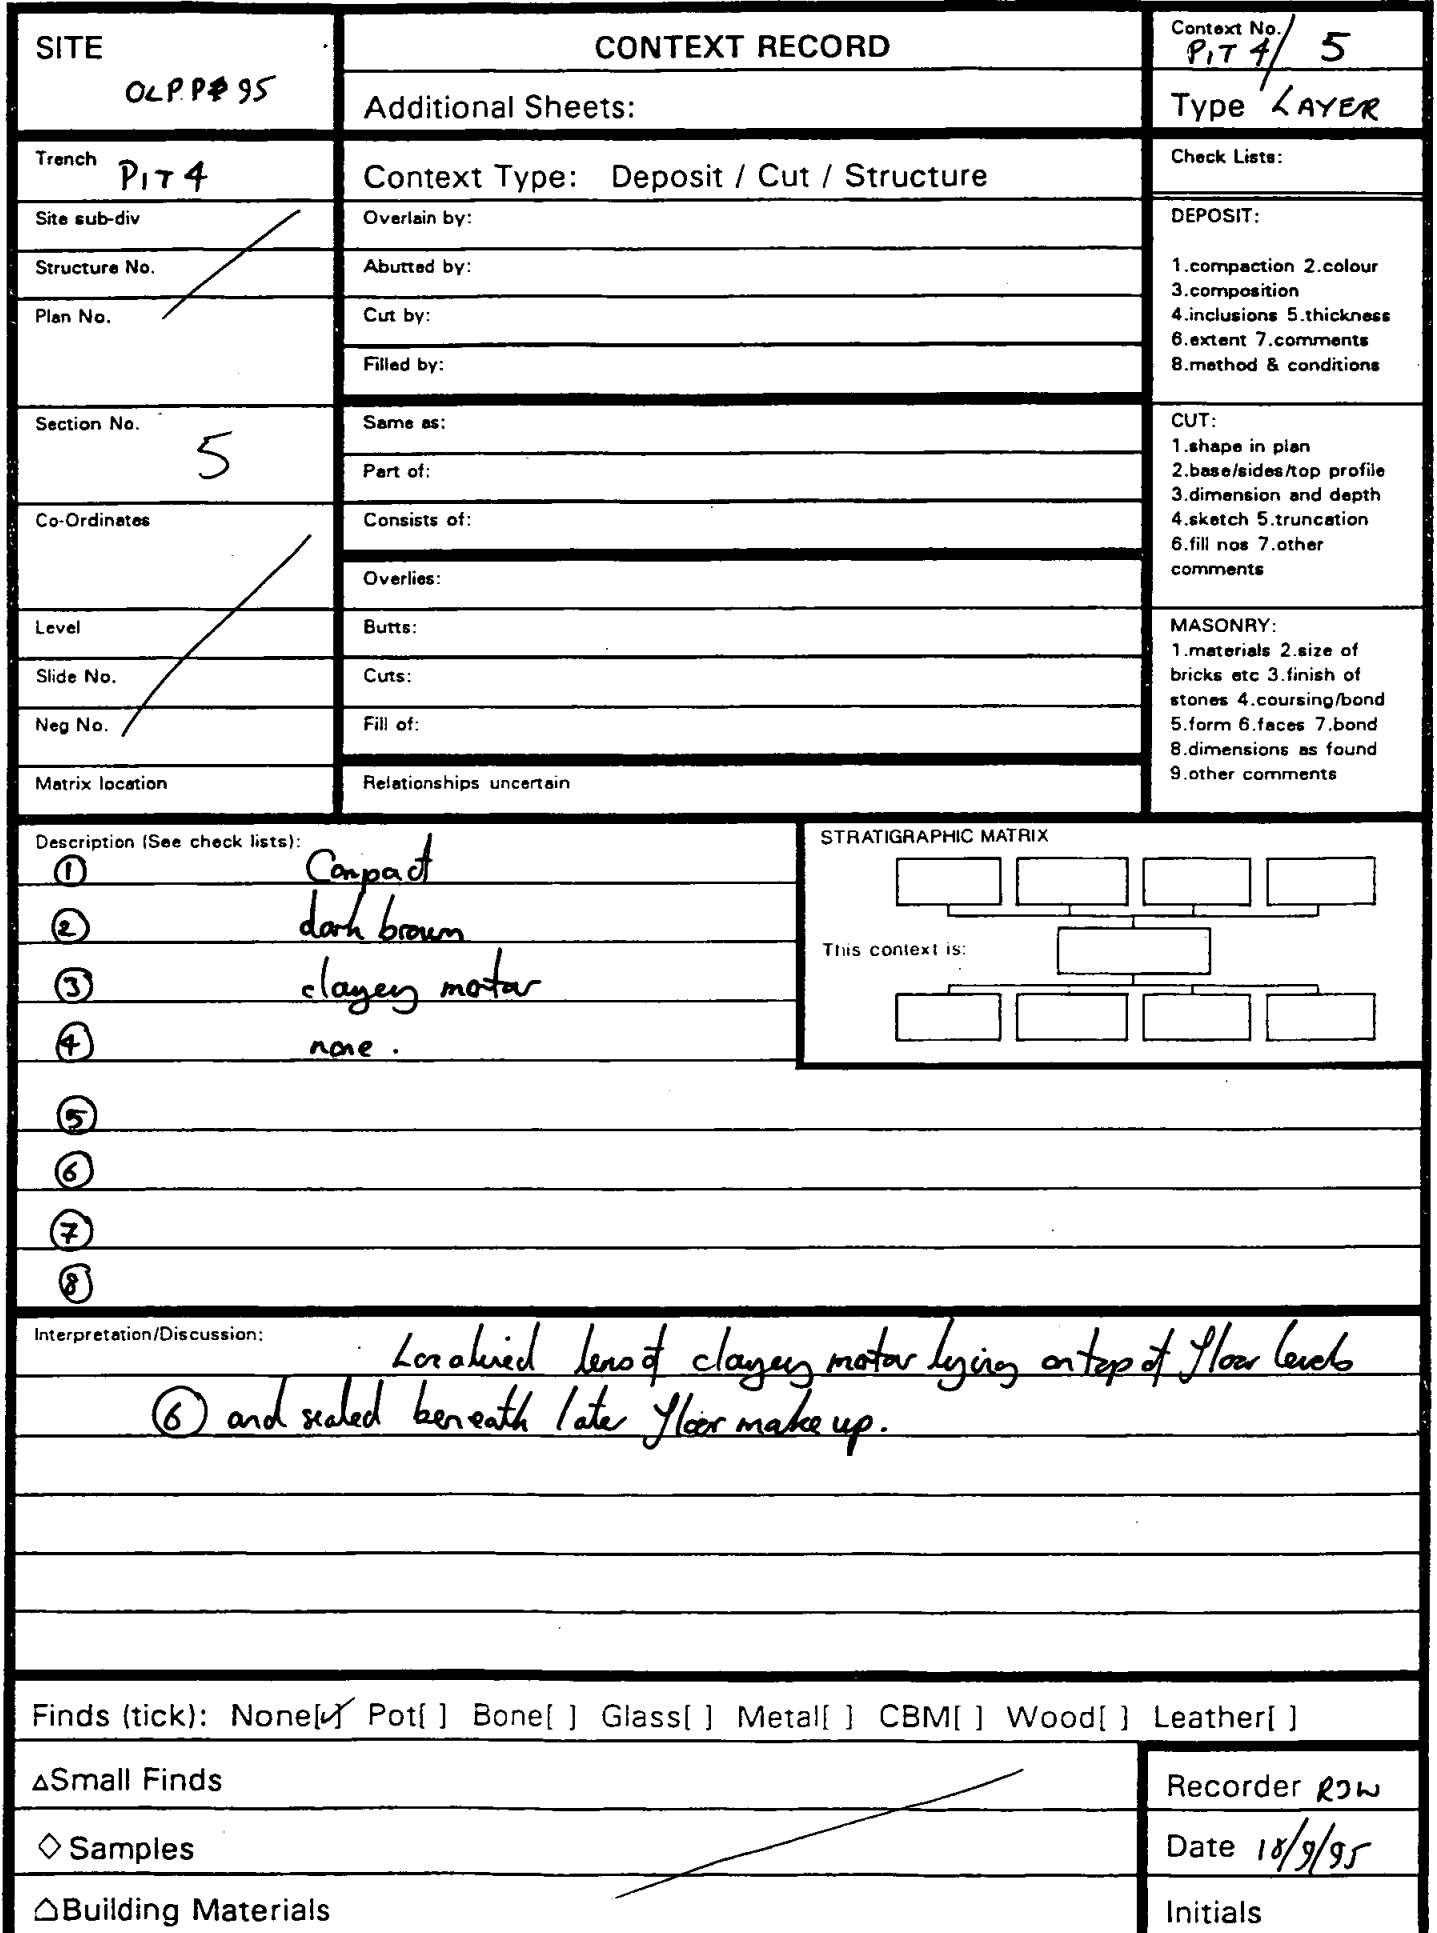 SITE
OLPP 95
CONTEXT RECORD
Additional Sheets:
Context No.
PIT 4/ 5
Type LAYER
Trench PIT 4
Context Type: Deposit / Cut / Structure
Check Lists:
Site sub-div
Structure No.
Plan No.
Section No.
5
Co-Ordinates
Level
Slide No.
Neg No.
Matrix location
Overlain by:
Abutted by:
Cut by:
Filled by:
Same as:
Part of:
Consists of:
Overlies:
Butts:
Cuts:
Fill of:
Relationships uncertain
DEPOSIT:
1.compaction 2.colour
3.composition
4.inclusions 5.thickness
6.extent 7.comments
8.method & conditions
CUT:
1.shape in plan
2.base/sides/top profile
3.dimension and depth
4.sketch 5.truncation
6.fill nos 7.other
comments
MASONRY:
1.materials 2.size of
bricks etc 3.finish of
stones 4.coursing/bond
5.form 6.faces 7.bond
8.dimensions as found
9.other comments
Description (See check lists):
1 Compact
2 dark brown
3 clayey motar
4 none.
5
6
7
8
STRATIGRAPHIC MATRIX
This context is:
Interpretation/Discussion:
Localised lens of clayey motar lying on top of floor levels
6 and sealed beneath later floor make up.
Finds (tick): None[✓] Pot[ ] Bone[ ] Glass[ ] Metal[ ] CBM[ ] Wood[ ] Leather[ ]
△Small Finds
◇ Samples
Building Materials
Recorder RJW
Date 18/9/95
Initials